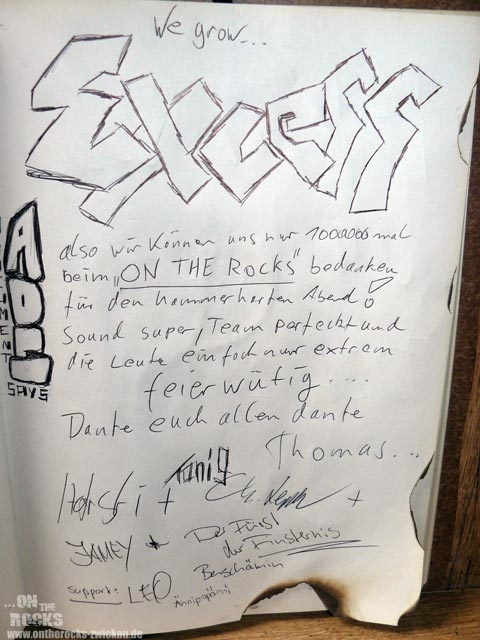 We grow...
Excess
also wir Können uns nur 1000000 mal
beim „ON THE ROCKS" bedanken
für den hammerharten Abend!
Sound super, Team perfeckt und
die Leute einfach nur extrem
feierwütig....
Danke euch allen danke
Thomas...
Tanig
+
+
JAMEY +
Der Fürst
der Finsternis
Berschämin
Ännipopänni
support: LEO
SAYS
...ON
THE
ROCKS
www.ontherocks-zwickau.de